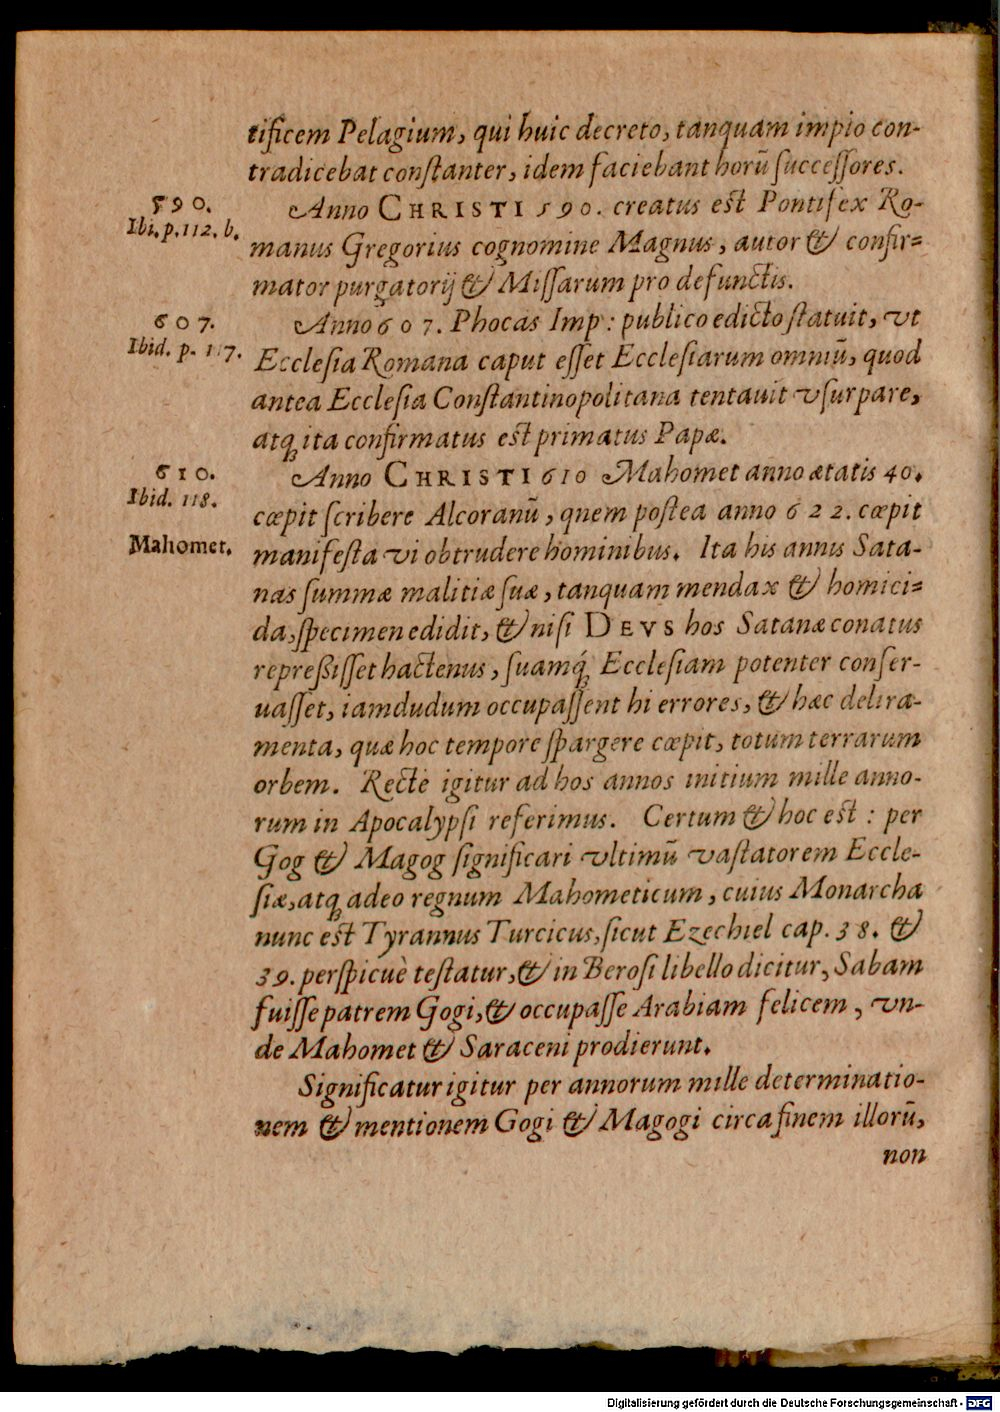 tificem Pelagium, qui huic decreto, tanquam impio con-
tradicebat constanter, idem faciebant horū successores.
590.
Ibi. p. 112. b.
Anno CHRISTI 590. creatus est Pontifex Ro-
manus Gregorius cognomine Magnus, autor & confir-
mator purgatorij & Missarum pro defunctis.
607.
Ibid. p. 117.
Anno 607. Phocas Imp: publico edicto statuit, vt
Ecclesia Romana caput esset Ecclesiarum omniū, quod
antea Ecclesia Constantinopolitana tentauit vsurpare,
atq́ ita confirmatus est primatus Papæ.
610.
Ibid. 118.
Mahomet.
Anno CHRISTI 610 Mahomet anno ætatis 40.
cœpit scribere Alcoranū, quem postea anno 622. cœpit
manifesta vi obtrudere hominibus. Ita his annis Sata-
nas summæ malitiæ suæ, tanquam mendax & homici-
da, specimen edidit, & nisi DEVS hos Satanæ conatus
repreßisset hactenus, suamq́ Ecclesiam potenter conser-
uasset, iamdudum occupassent hi errores, & hæc delira-
menta, quæ hoc tempore spargere cœpit, totum terrarum
orbem. Rectè igitur ad hos annos initium mille anno-
rum in Apocalypsi referimus. Certum & hoc est: per
Gog & Magog significari vltimū vastatorem Eccle-
siæ, atq́ adeo regnum Mahometicum, cuius Monarcha
nunc est Tyrannus Turcicus, sicut Ezechiel cap. 38. &
39. perspicuè testatur, & in Berosi libello dicitur, Sabam
fuisse patrem Gogi, & occupasse Arabiam felicem, vn-
de Mahomet & Saraceni prodierunt.
Significatur igitur per annorum mille determinatio-
nem & mentionem Gogi & Magogi circa finem illorū,
non
Digitalisierung gefördert durch die Deutsche Forschungsgemeinschaft - DFG